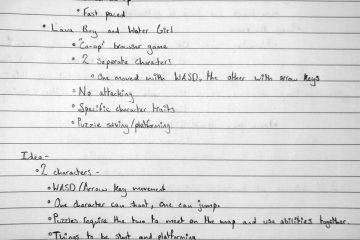 • Fast paced
• Lava Boy and Water Girl
• "Co-op" browser game
• 2 separate characters
• One moved with WASD, the other with arrow keys
• No attacking
• Specific character traits
• Puzzle solving/platforming
Idea:-
• 2 characters -
• WASD/Arrow key movement
• One character can shoot, one can jump
• Puzzles require the two to meet on the map and use abilities together
• Things to be shot and platforming